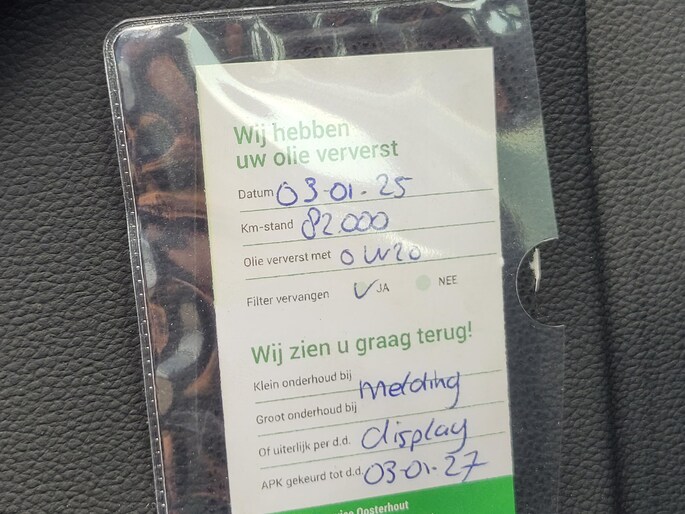 Wij hebben
uw olie ververst
Datum 03-01-25
Km-stand 82.000
Olie ververst met 0W20
Filter vervangen ✓ JA NEE
Wij zien u graag terug!
Klein onderhoud bij
Groot onderhoud bij Melding
Of uiterlijk per d.d. display
APK gekeurd tot d.d. 03-01-27
Oosterhout